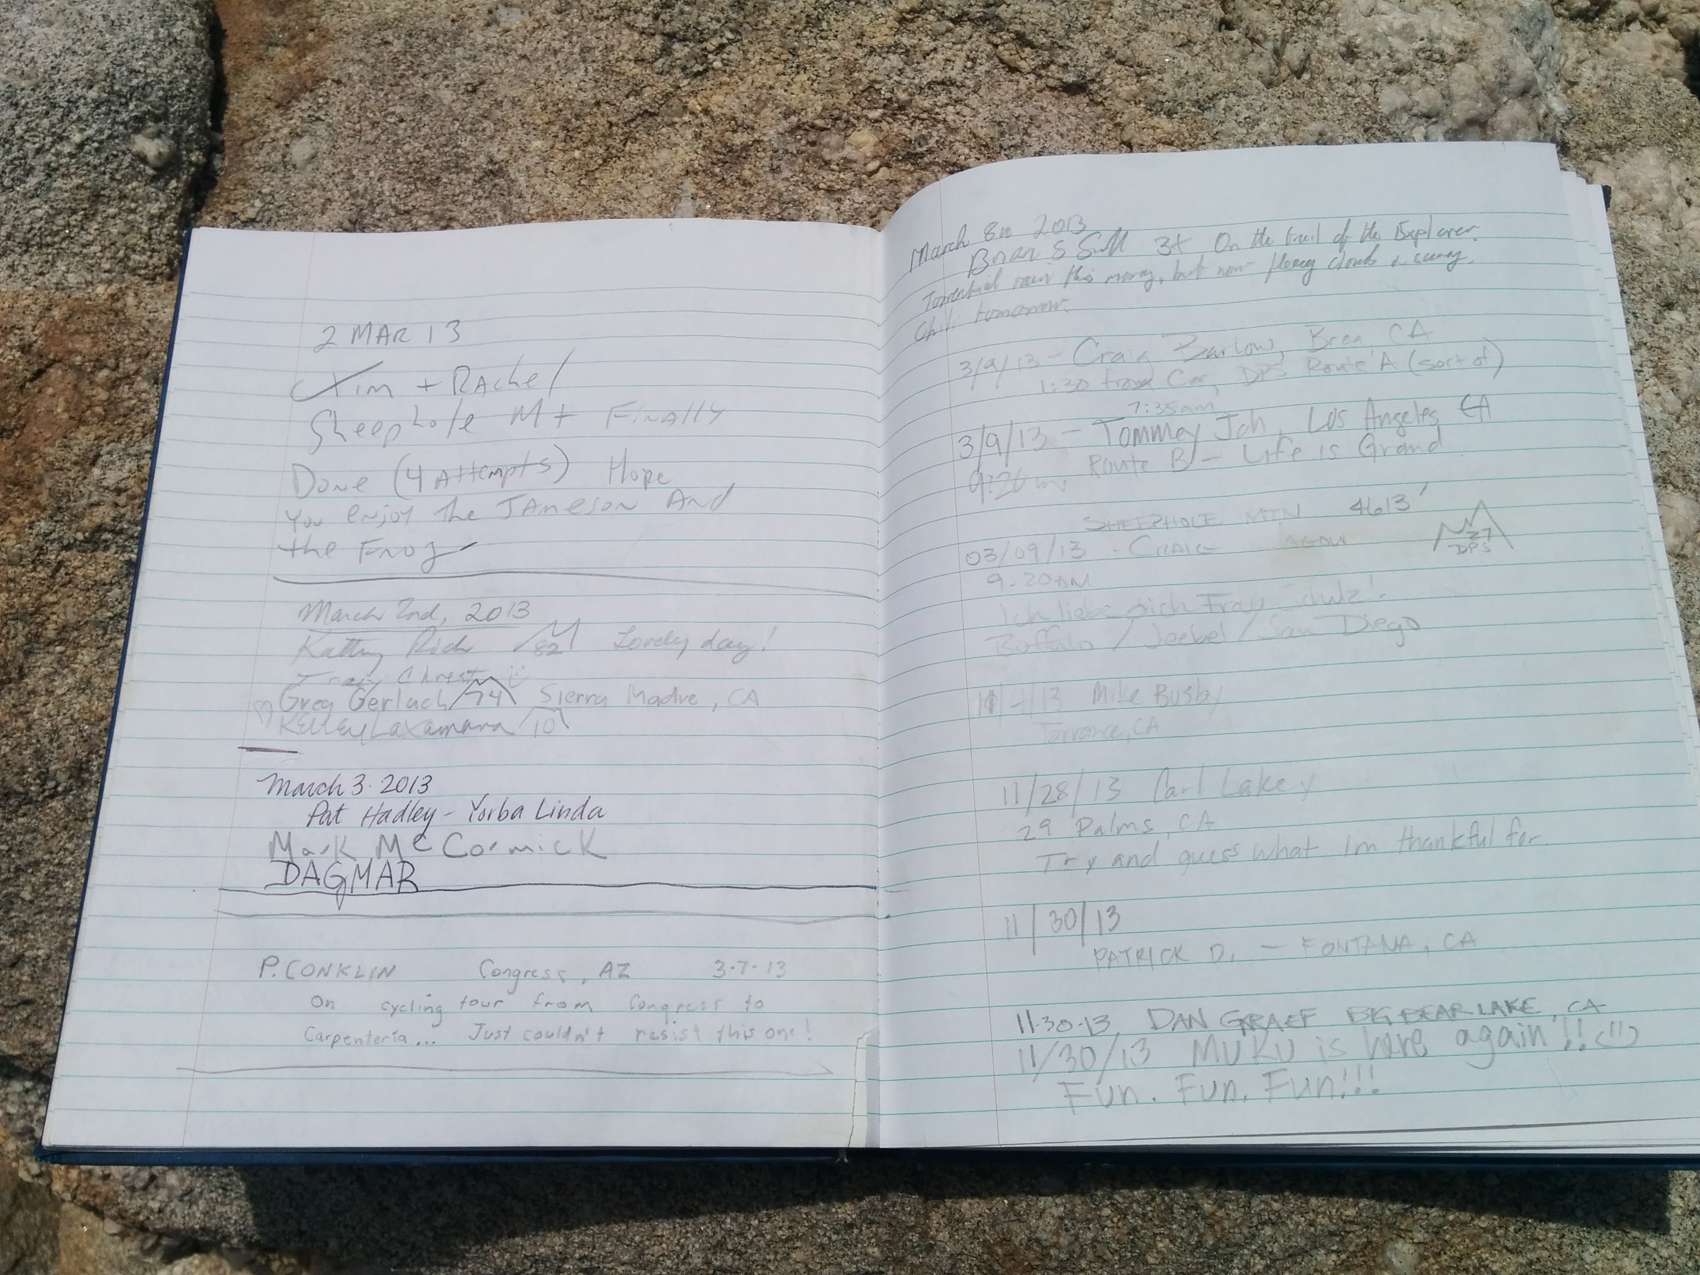 2 MAR 13
+ RAchel
Sheephole Mt Finally
Done (4 Attempts) Hope
you enjoy the JAmeson And
the Frog
March 2nd, 2013
Kathy Rich 82 Lovely day!
Tracy Christ
Greg Gerlach 74 Sierra Madre, CA
Kelley Laxamana 10
March 3. 2013
Pat Hadley - Yorba Linda
Mark McCormick
DAGMAR
P. CONKLIN Congress, AZ 3-7-13
On cycling tour from Congress to
Carpenteria... Just couldn't resist this one!
March 8th 2013
Brian S 3+ On the trail of the Explorer.
Torrential rain this morning, but now fleecy clouds &
tomorrow.
3/9/13 - Craig Barlow, Brea, CA
1:30 from Car, DPS Route A (sort of)
7:35am
3/9/13 - Tommey Joh, Los Angeles, CA
9:20 Route B - Life is Grand
SHEEPHOLE MTN 4613'
03/09/13 - CRAIG AGAIN 27 DPS
9:20AM
Ich liebe dich Frau
Buffalo / / San Diego
13 Mike Busby
Torrance, CA
11/28/13 Carl Lakey
29 Palms, CA
Try and guess what Im thankful for.
11/30/13
PATRICK D. - FONTANA, CA
11-30-13 DAN GRAEF BIG BEAR LAKE, CA
11/30/13 MUKU is here again!!
Fun. Fun. Fun!!!